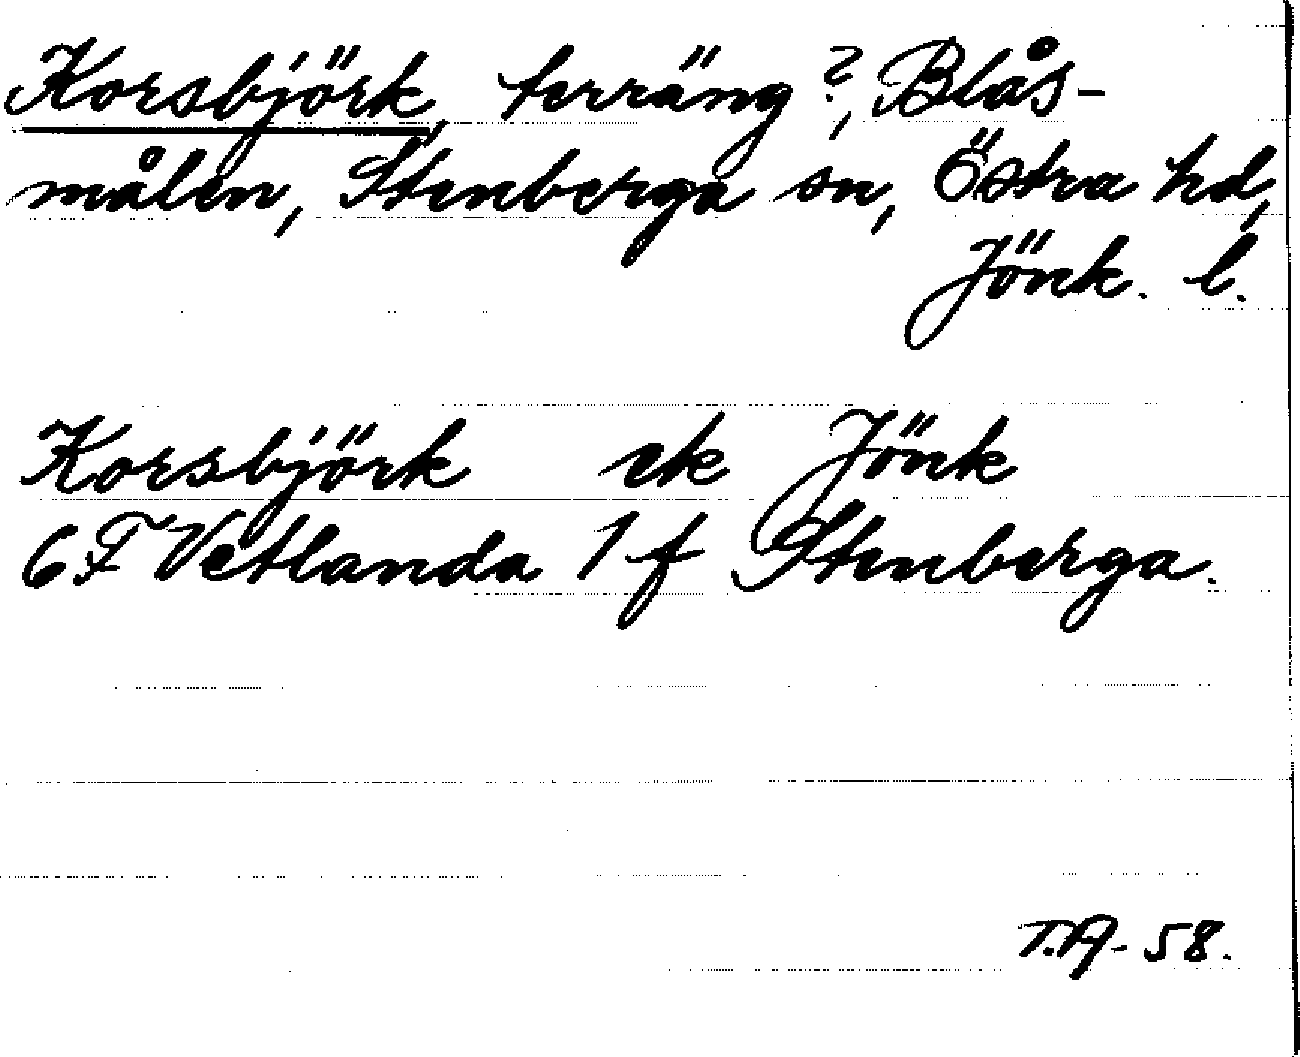 Korsbjörk, terräng?, Blås-
målen, Stenberga sn, Östra hd,
Jönk. l.
Korsbjörk ek Jönk
6F Vetlanda 1 f Stenberga.
T.A- 58.